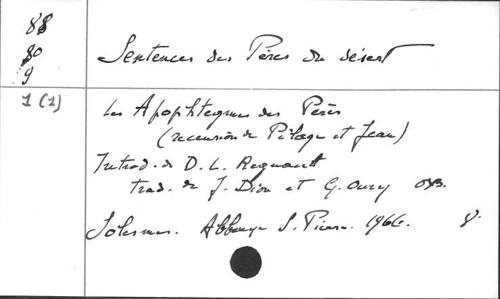 88
80
9
Sentences des Pères du désert
1 (1)
Les Apophtegmes des Pères
(recension de Pélage et Jean)
Introd. de D. L. Regnault
trad. de J. Dion et G. Oury OSB.
Solesmes. Abbaye S. Pierre. 1966. 8°.